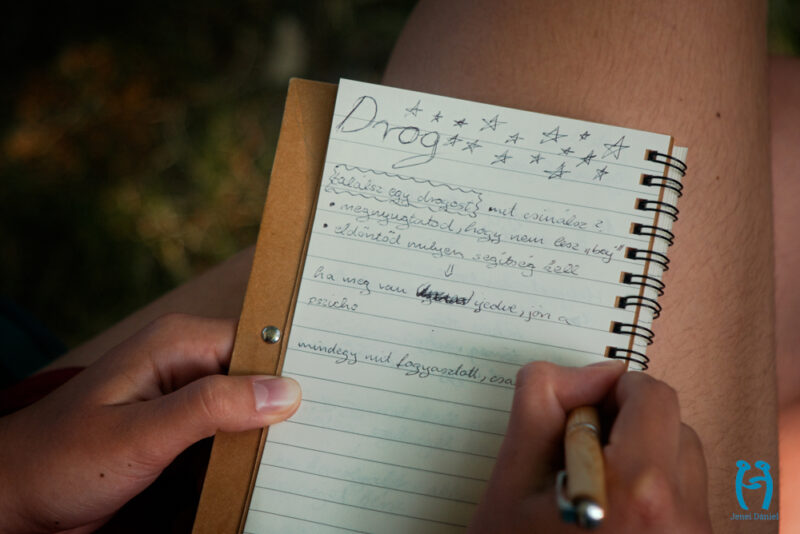 Drog
találsz egy drogost mit csinálsz?
• megnyugtatod, hogy nem lesz „baj"
• eldöntöd milyen segítség kell
⇓
ha meg van ijedve, jön a
pszicho
mindegy mit fogyasztott, csa
Jenei Dániel